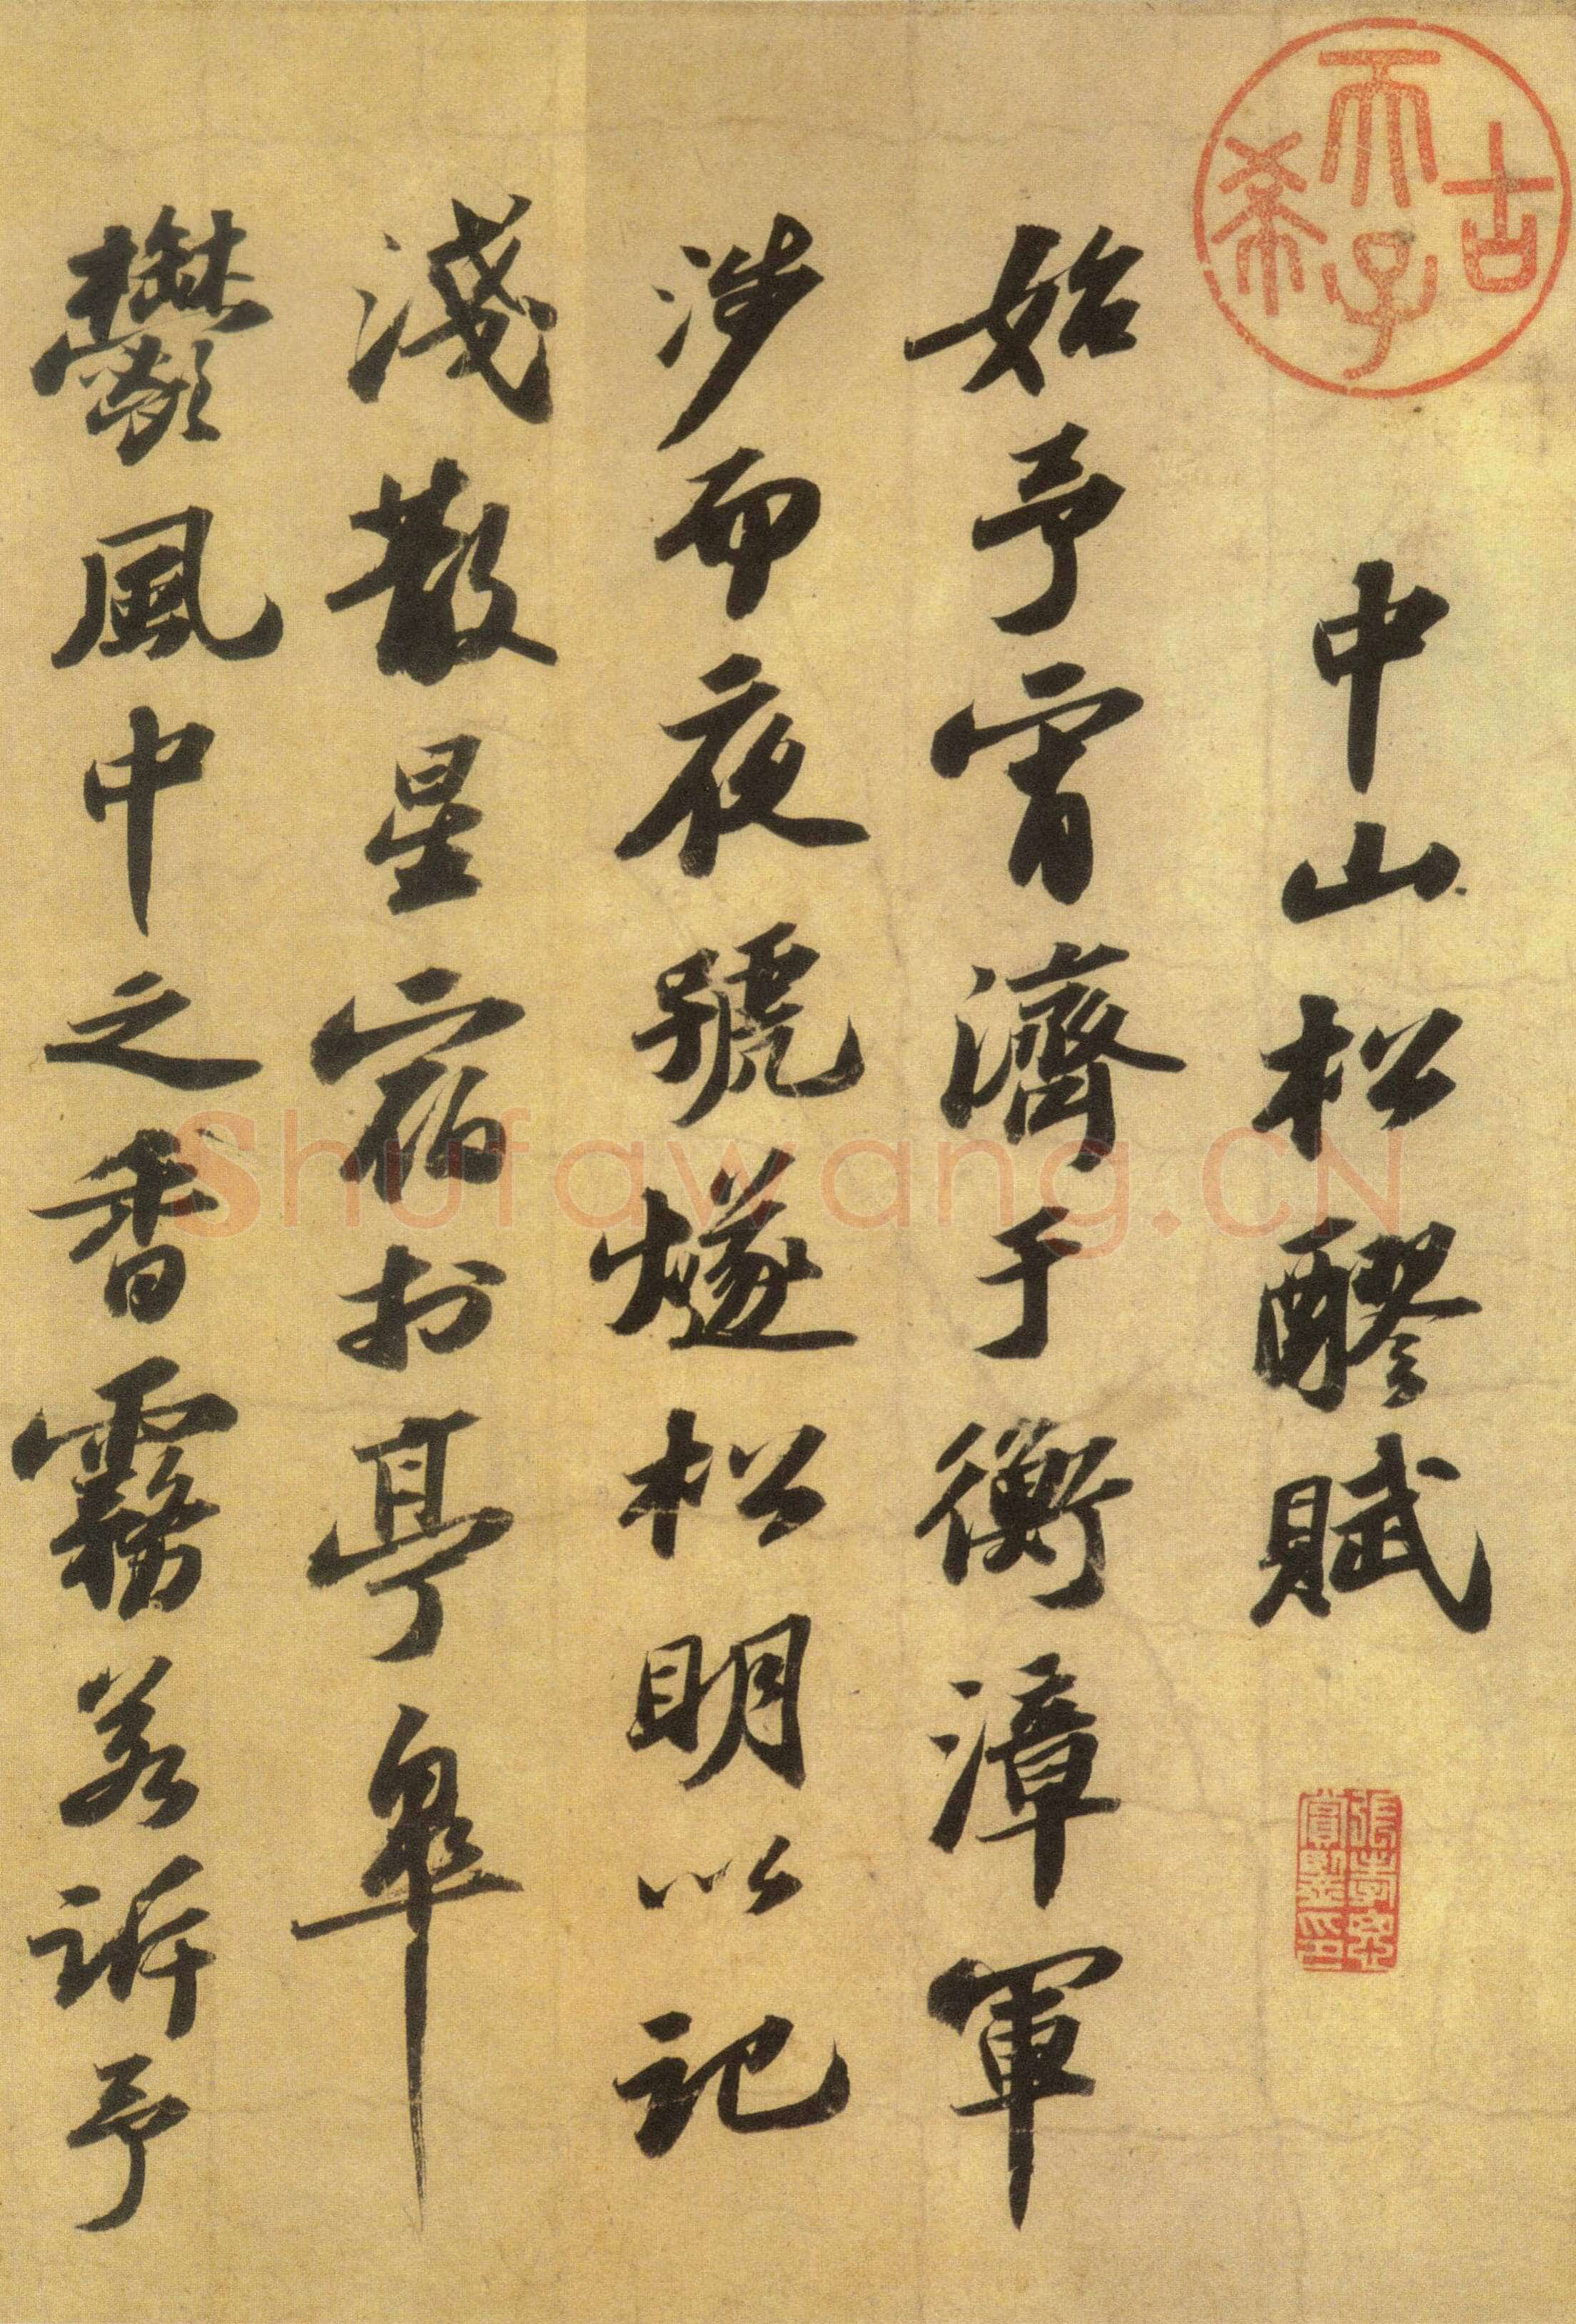 中山松醪賦
始予宵濟于衡漳軍
涉而夜號燧松明以記
淺散星宿於亭皋
鬱風中之香霧若訴予
古希天子
張孝思賞鑒印
Shufawang.CN